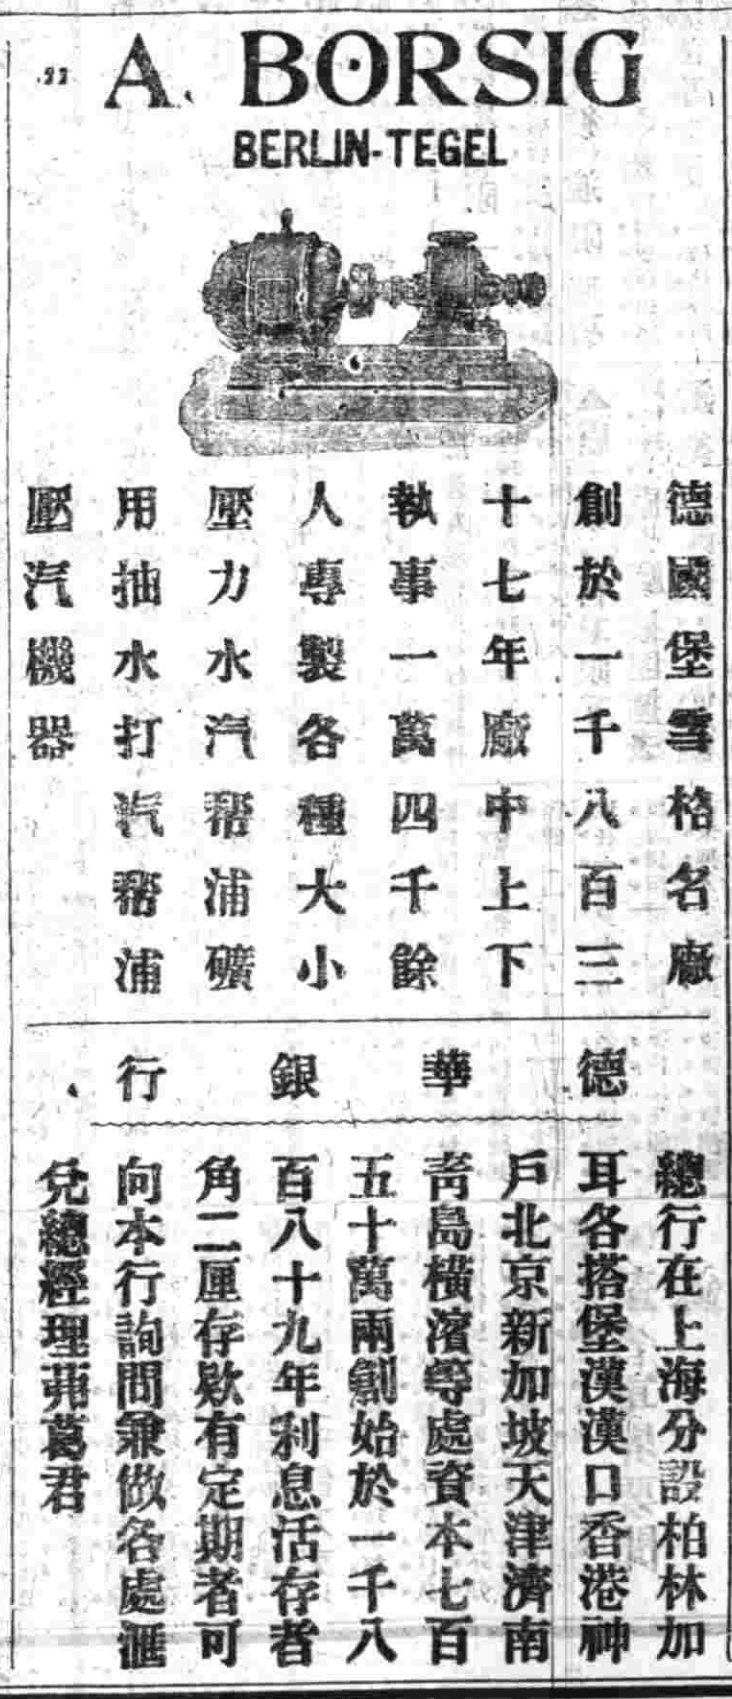 A. BORSIG
BERLIN-TEGEL
德國堡雪格名廠
創於一千八百三
十七年廠中上下
執事一萬四千餘
人專製各種大小
壓力水汽幇浦礦
用抽水打汽幇浦
壓汽機器
德華銀行
總行在上海分設柏林加
耳各搭堡漢漢口香港神
戶北京新加坡天津濟南
靑島橫濱等處資本七百
五十萬兩創始於一千八
百八十九年利息活存者
角二厘存欵有定期者可
向本行詢問兼做各處滙
兌總經理茀葛君